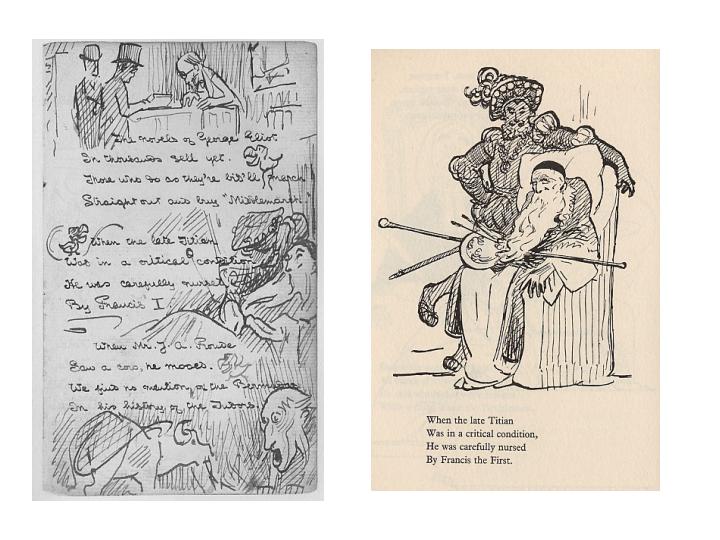 The novels of George Eliot
In thousands sell yet.
Those who do as they're bid'll march
Straight out and buy "Middlemarch."
When the late Titian
Was in a critical condition
He was carefully nursed
By Francis I.
When Mr. J. A. Froude
Saw a cow, he mooed.
We find no mention of the Bermudas
In his history of the Tudors.
When the late Titian
Was in a critical condition,
He was carefully nursed
By Francis the First.